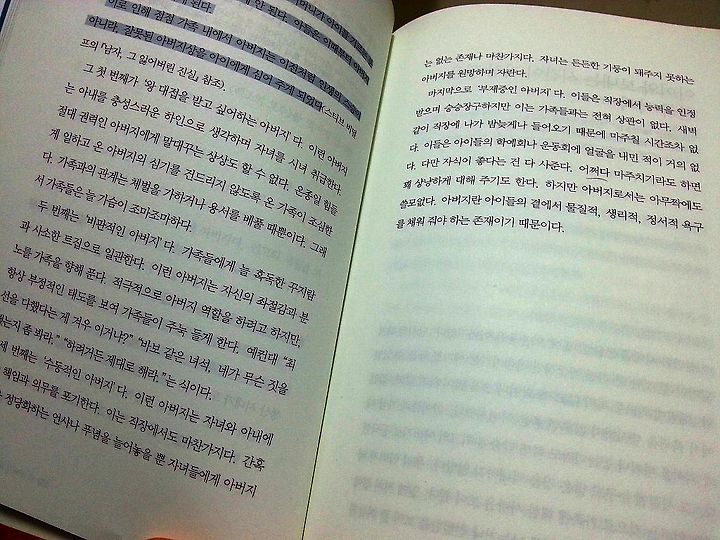 이로 인해 점점 가족 내에서 아버지는 이전처럼 인생의 스승이
아니라, 잘못된 아버지상을 아이에게 심어 주게 되었다(스티브 비덜
프의 「남자, 그 잃어버린 진실」 참조).
그 첫 번째가 '왕 대접을 받고 싶어하는 아버지'다. 이런 아버지
는 아내를 충성스러운 하인으로 생각하며 자녀를 시녀 취급한다.
절대 권력인 아버지에게 말대꾸는 상상도 할 수 없다. 온종일 힘들
게 일하고 온 아버지의 심기를 건드리지 않도록 온 가족이 조심한
다. 가족과의 관계는 체벌을 가하거나 용서를 베풀 때뿐이다. 그래
서 가족들은 늘 가슴이 조마조마하다.
두 번째는 '비판적인 아버지'다. 가족들에게 늘 혹독한 꾸지람
과 사소한 트집으로 일관한다. 이런 아버지는 자신의 좌절감과 분
노를 가족을 향해 푼다. 적극적으로 아버지 역할을 하려고 하지만,
항상 부정적인 태도를 보여 가족들이 주눅 들게 한다. 예컨대 "최
선을 다했다는 게 겨우 이거냐?" "바보 같은 녀석, 네가 무슨 짓을
했는지 좀 봐라." "하려거든 제대로 해라."는 식이다.
세 번째는 '수동적인 아버지'다. 이런 아버지는 자녀와 아내에
책임과 의무를 포기한다. 이는 직장에서도 마찬가지다. 간혹
정당화하는 언사나 푸념을 늘어놓을 뿐 자녀들에게 아버지
는 없는 존재나 마찬가지다. 자녀는 든든한 기둥이 돼주지 못하는
아버지를 원망하며 자란다.
마지막으로 '부재중인 아버지'다. 이들은 직장에서 능력을 인정
받으며 승승장구하지만 이는 가족들과는 전혀 상관이 없다. 새벽
같이 직장에 나가 밤늦게나 들어오기 때문에 마주칠 시간조차 없
다. 이들은 아이들의 학예회나 운동회에 얼굴을 내민 적이 거의 없
다. 다만 자식이 좋다는 건 다 사준다. 어쩌다 마주치기라도 하면
꽤 상냥하게 대해 주기도 한다. 하지만 아버지로서는 아무짝에도
쓸모없다. 아버지란 아이들의 곁에서 물질적, 생리적, 정서적 욕구
를 채워 줘야 하는 존재이기 때문이다.